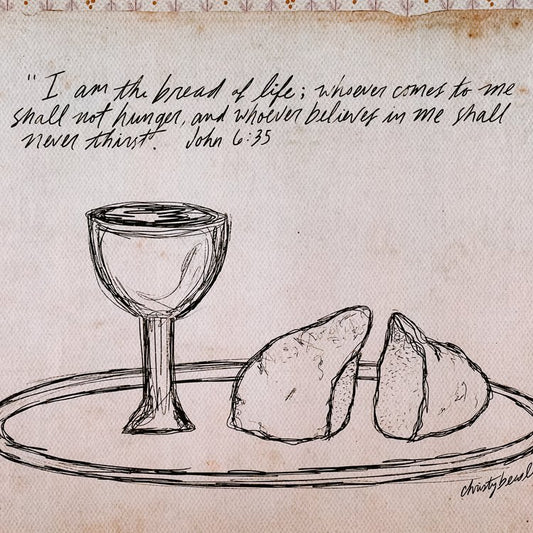 " I am the bread of life; whoever comes to me
shall not hunger, and whoever believes in me shall
never thirst." John 6:35